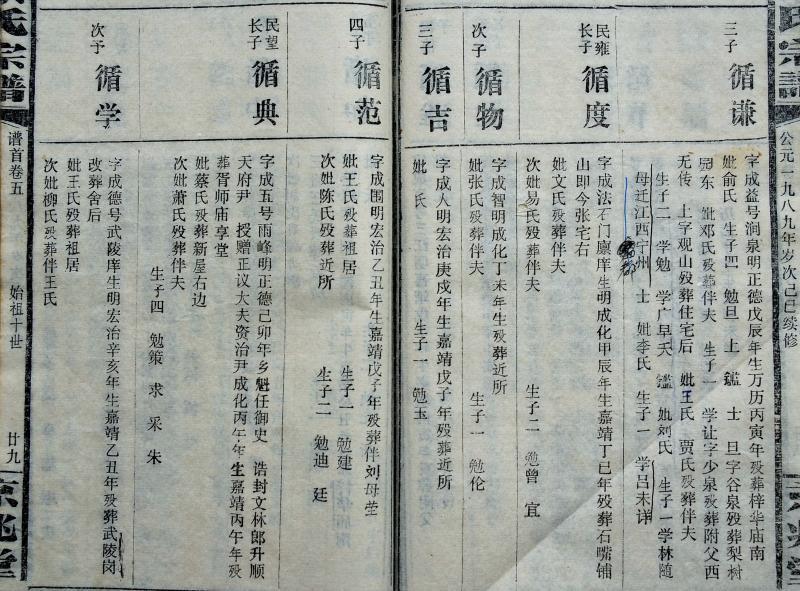 公元一九八九年岁次己巳续修
三子 循谦
字成益号涧泉明正德戊辰年生万历丙寅年殁葬梓华庙南
妣俞氏 生子四 勉旦 上 鑑 士 旦字谷泉殁葬梨树
东 妣邓氏殁葬伴夫 生子一 学让字少泉殁葬附父西
无传 上字观山殁葬住宅后 妣王氏 贾氏殁葬伴夫
生子二 学勉 学广早夭 鑑 妣刘氏 生子一学林随
母迁江西宁州 士 妣李氏 生子一 学吕未详
民雍长子 循度
字成法石门廪庠生明成化甲辰年生嘉靖丁巳年殁葬石嘴铺
山即今张宅右
妣文氏殁葬伴夫
次妣易氏殁葬伴夫 生子二 勉曾 宜
次子 循物
字成智明成化丁未年生殁葬近所
妣张氏殁葬伴夫 生子一 勉伦
三子 循吉
字成人明宏治庚戌年生嘉靖戊子年殁葬近所
妣 氏 生子一 勉玉
四子 循范
字成围明宏治乙丑年生嘉靖戊子年殁葬伴刘母茔
妣王氏殁葬祖居 生子一 勉建
次妣陈氏殁葬近所 生子二 勉迪 廷
民望长子 循典
字成五号雨峰明正德己卯年乡魁任御史 诰封文林郎升顺
天府尹 授赠正议大夫资治尹成化丙午年生嘉靖丙午年殁
葬胥师庙享堂
妣蔡氏殁葬新屋右边
次妣萧氏殁葬伴夫
生子四 勉策 求 采 朱
次子 循学
字成德号武陵庠生明宏治辛亥年生嘉靖乙丑年殁葬武陵岗
改葬舍后
妣王氏殁葬祖居
次妣柳氏殁葬伴王氏
氏宗譜
谱首卷五
始祖十世
廿九
京兆堂